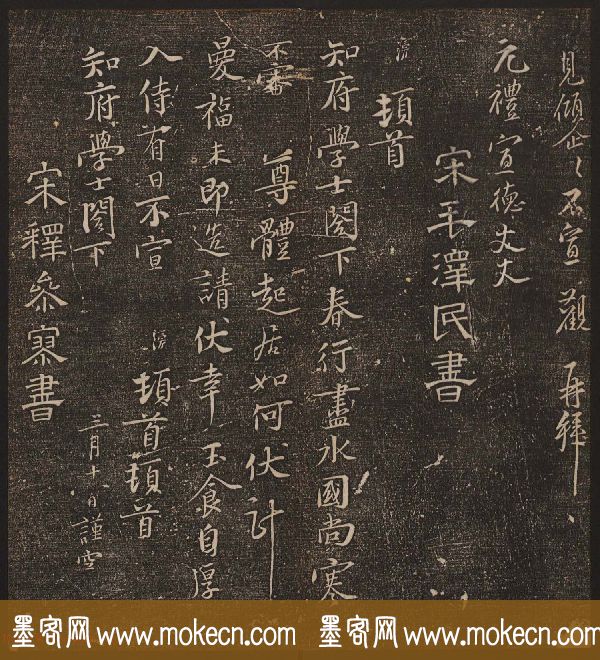 見傾企〻不宣 觀 再拜
元禮宣德丈丈
宋毛澤民書
滂 頓首
知府學士閣下春行盡水國尚寒
不審 尊體起居如何伏計
曼福未即造請伏幸 玉食自厚
入侍有日不宣 滂 頓首頓首
知府學士閣下 三月十八日謹空
宋釋參寥書
墨客网 www.mokecn.com 墨客网 www.mokecn.com